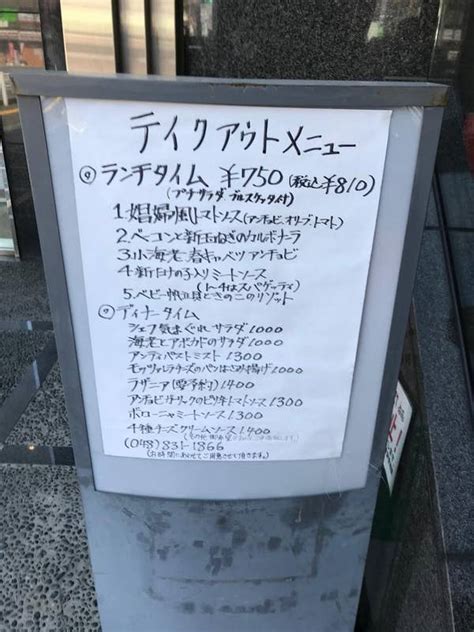 テイクアウトメニュー
◎ランチタイム ¥750 (税込¥810)
(プチサラダ、ブルスケッタ付)
1.娼婦風トマトソース(アンチョビ、オリーブ、トマト)
2.ベーコンと新玉ねぎのカルボナーラ
3.小海老、春キャベツアンチョビ
4.新たけの子入りミートソース
(1~4はスパゲッティ)
5.ベビー帆立ときのこのリゾット
◎ディナータイム
シェフ気まぐれサラダ1000
海老とアボカドのサラダ1000
アンティパストミスト1300
モッツァレラチーズのパンはさみ揚げ1000
ラザニア(要予約)1400
アンチョビガーリックのピリ辛トマトソース1300
ボローニャミートソース1300
4種チーズクリームソース1400
(048)831-1866
(お時間にあわせてご用意させて頂きます。)